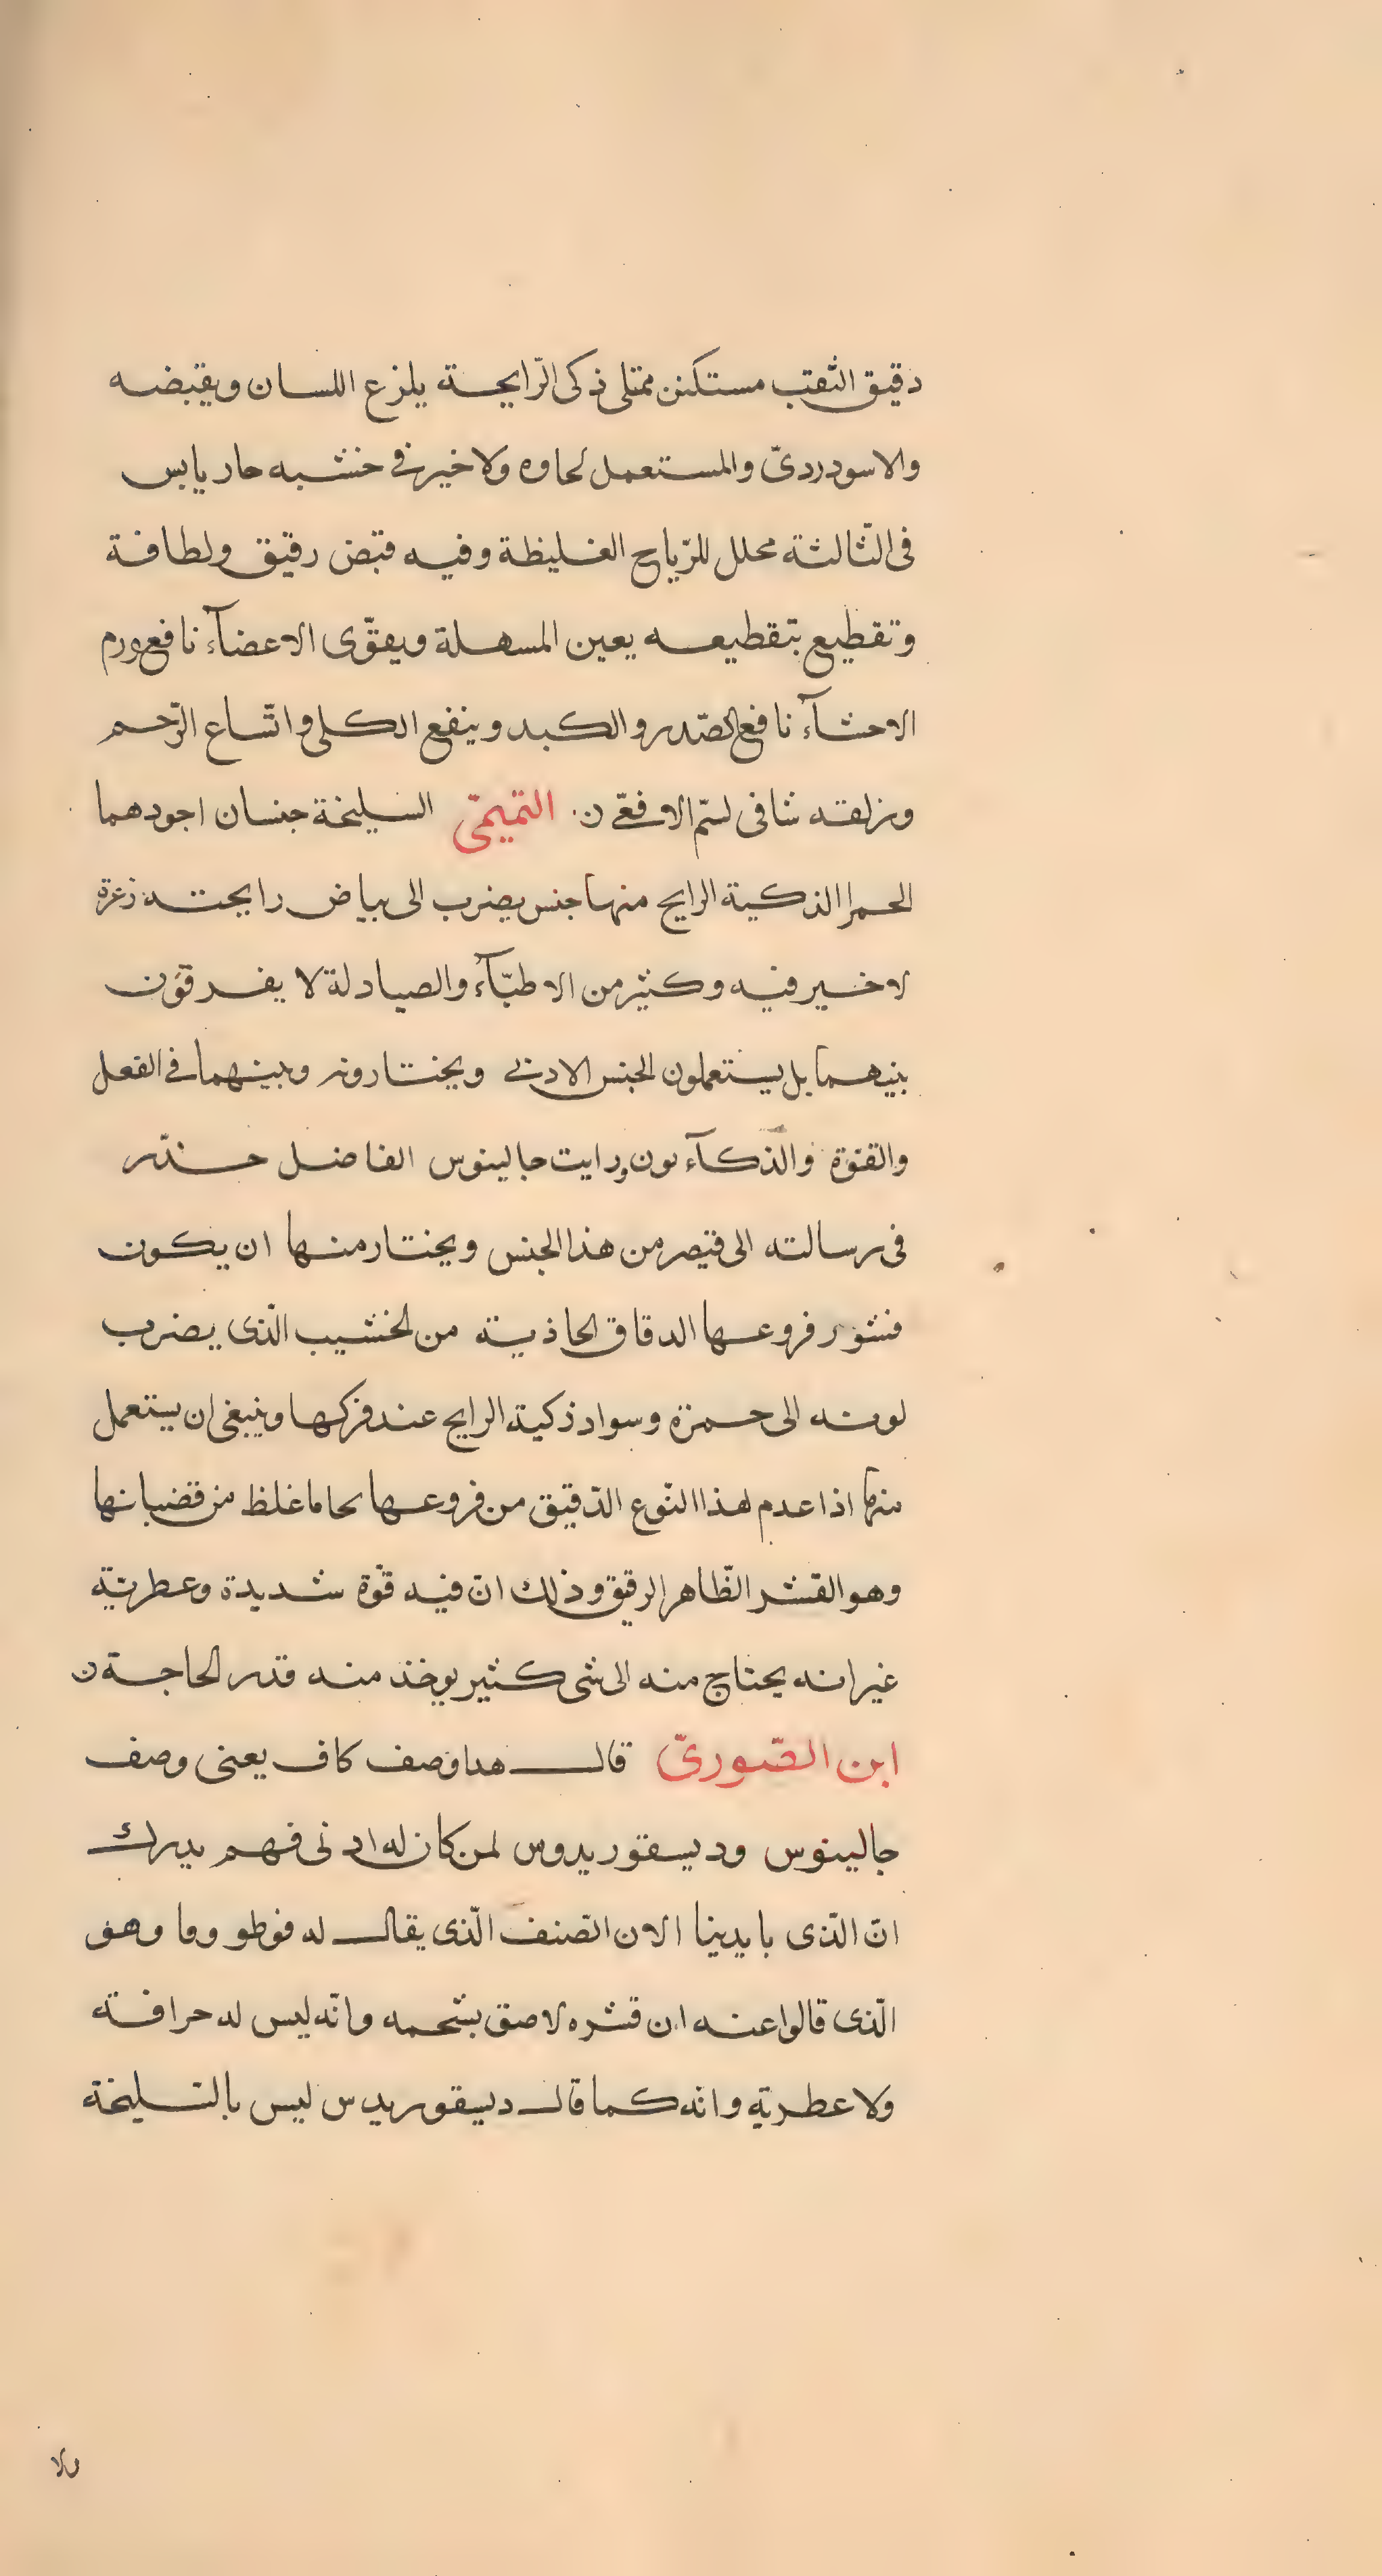 دقيق الثقب مستكنن ممتلى ذكى الرّايحة يلذع اللسان ويقبضه
والاسود ردىّ والمستعمل لحاوه ولا خير فى خشبه حار يابس
فى الثّالثة محلل للرّياح الغليظة وفيه قبض رقيق ولطافة
وتقطيع بتقطيعه يعين المسهلة ويقوّى الاعضآء نافع ورم
الاحشآء نافع الصّدر والكبد وينفع الكلى واتّساع الرّحم
وزلقه شافى لسّم الافعى ن التميمّى السليخة جنسان اجودهما
الحمرا الذكية الرايح منها جنس يضرب الى بياض رايحته زعرة
لا خير فيه وكثير من الاطبّآء والصيادلة لا يفرقون
بنيهما بل يستعملون الجنس الادنى ويختارونه وبينهما فى الفعل
والقوّة والذكآء بون ورايت جالينوس الفاضل حذّر
فى رسالته الى قيصر من هذا الجنس ويختار منها ان يكون
قشور فروعها الدقاق الحاذية من الخشيب الّذى يضرب
لونه الى حمرة وسواد ذكية الرايح عند فركها وينبغى ان يستعمل
منها اذا عدم هذا النّوع الدّقيق من فروعها لحا ما غلظ من قضبانها
وهو القشر الظّاهر الرقيق وذلك انّ فيه قوّة شديدة وعطريّة
غير انه يحتاج منه الى شى كثير يوخذ منه قدر الحاجة ن
ابن الصّورىّ قال هدا وصف كاف يعنى وصف
جالينوس وديسقوريدوس لمن كان له ادنى فهم يدرك
انّ الّذى بايدينا الان الصّنف الّذى يقال له فوطو وما وهو
الّذى قالوا عنه ان قشره لاصق بشحمه وانّه ليس له حرافة
ولا عطرية وانّه كما قال دسيقوريدس ليس بالسّليخة
ولا